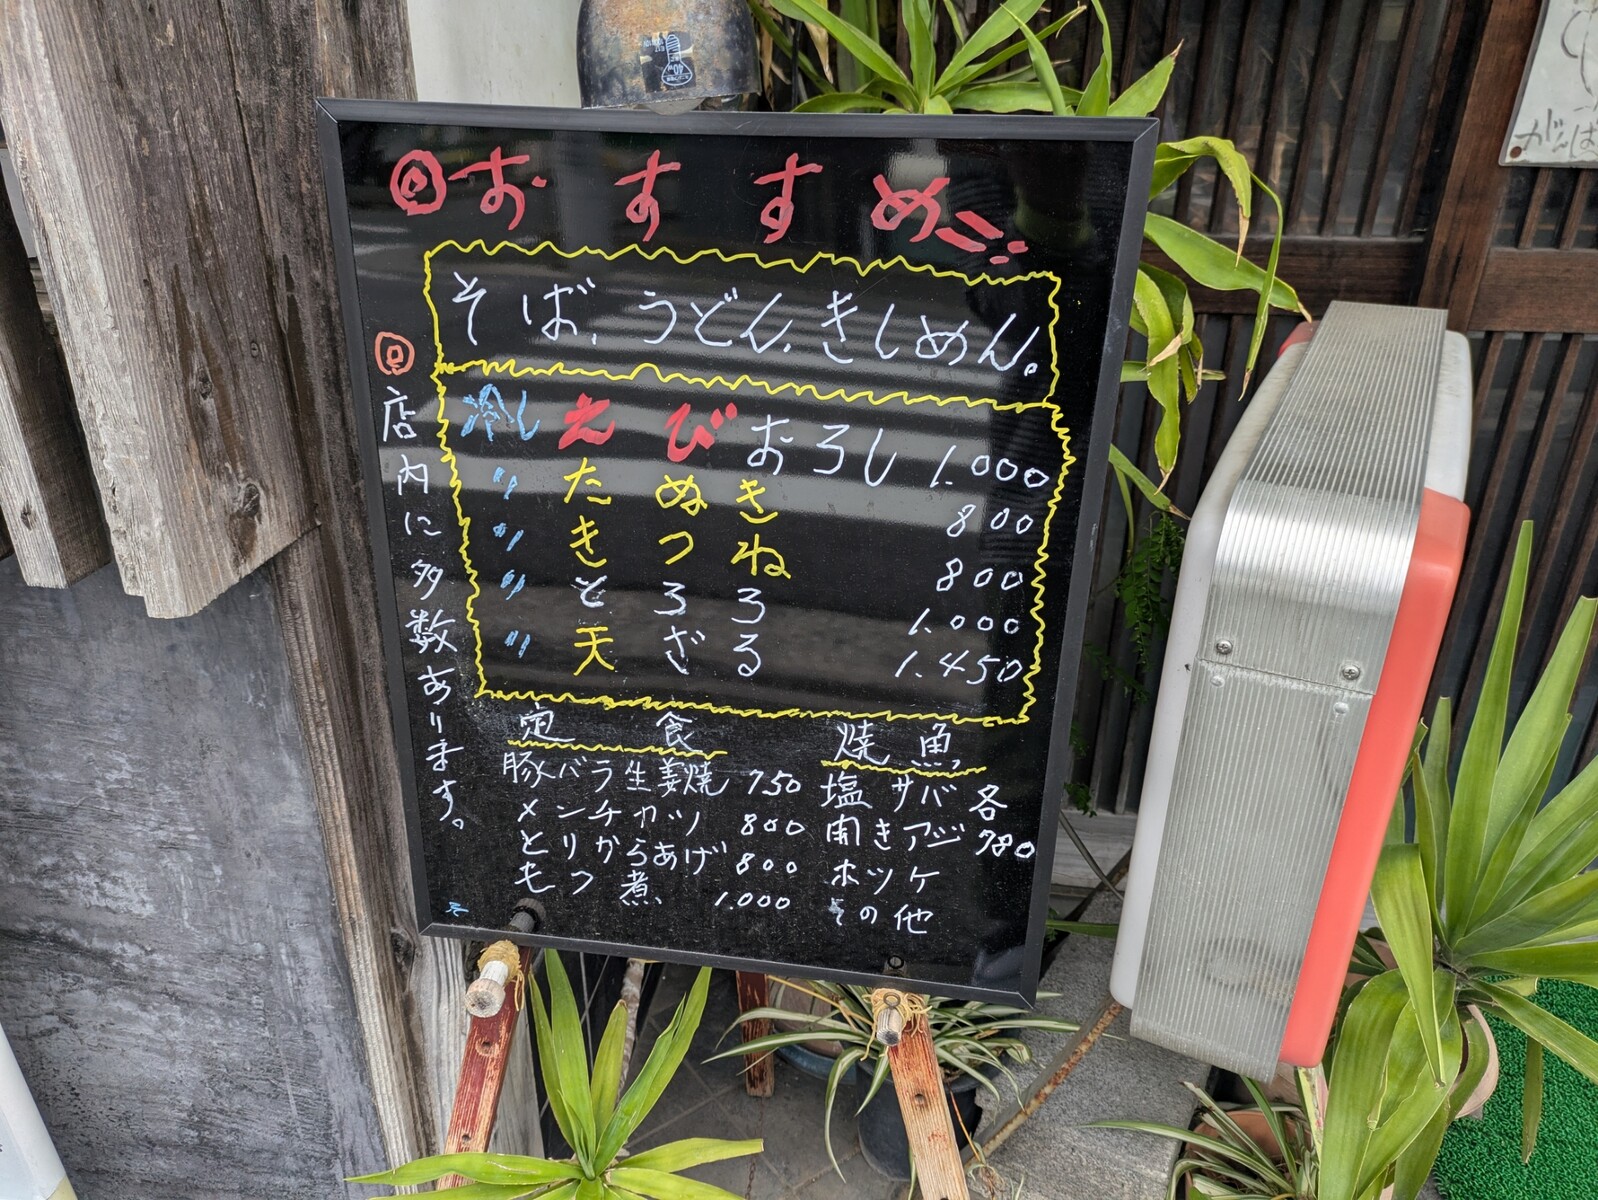 ◎おすすめ!!
そば、うどん、きしめん。
冷しえびおろし 1.000
〃 たぬき 800
〃 きつね 800
〃 とろろ 1.000
〃 天ざる 1.450
◎店内に多数あります。
定食
豚バラ生姜焼 750
メンチカツ 800
とりからあげ 800
もつ煮 1.000
焼魚
塩サバ 各
開きアジ 780
ホッケ
その他
40W
がんば